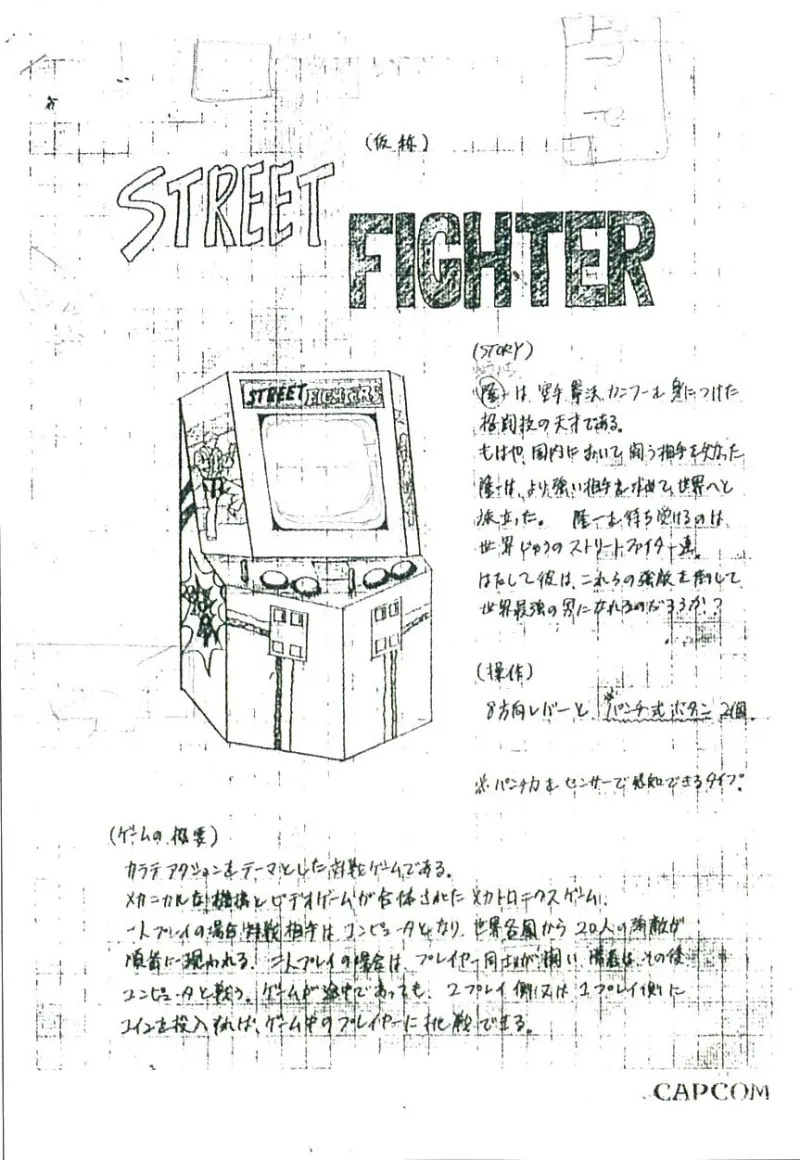 (仮称)
STREET
FIGHTER
STREET FIGHTER
(STORY)
隆一は、空手、拳法、カンフーを身につけた
格闘技の天才である。
もはや、国内において闘う相手を失なった
隆一は、より強い相手を求めて、世界へと
旅立った。 隆一を待ち受けるのは、
世界じゅうのストリートファイター達。
はたして彼は、これらの強敵を倒して、
世界最強の男になれるのだろうか?
(操作)
8方向レバーと、※パンチ式ボタン 2個。
※パンチ力をセンサーで感知できるタイプ。
(ゲームの概要)
カラテアクションをテーマとした対戦ゲームである。
メカニカルな機構とビデオゲームが合体されたメカトロニクスゲーム。
一人プレイの場合、対戦相手は、コンピュータとなり、世界各国から20人の強敵が
順番に現われる。二人プレイの場合は、プレイヤー同士が闘い、勝者は、その後
コンピュータと戦う。ゲームが途中であっても、2プレイ側又は1プレイ側に
コインを投入すれば、ゲーム中のプレイヤーに挑戦できる。
CAPCOM